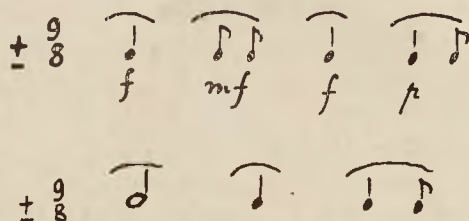 ± 9/8
f mf f p
± 9/8